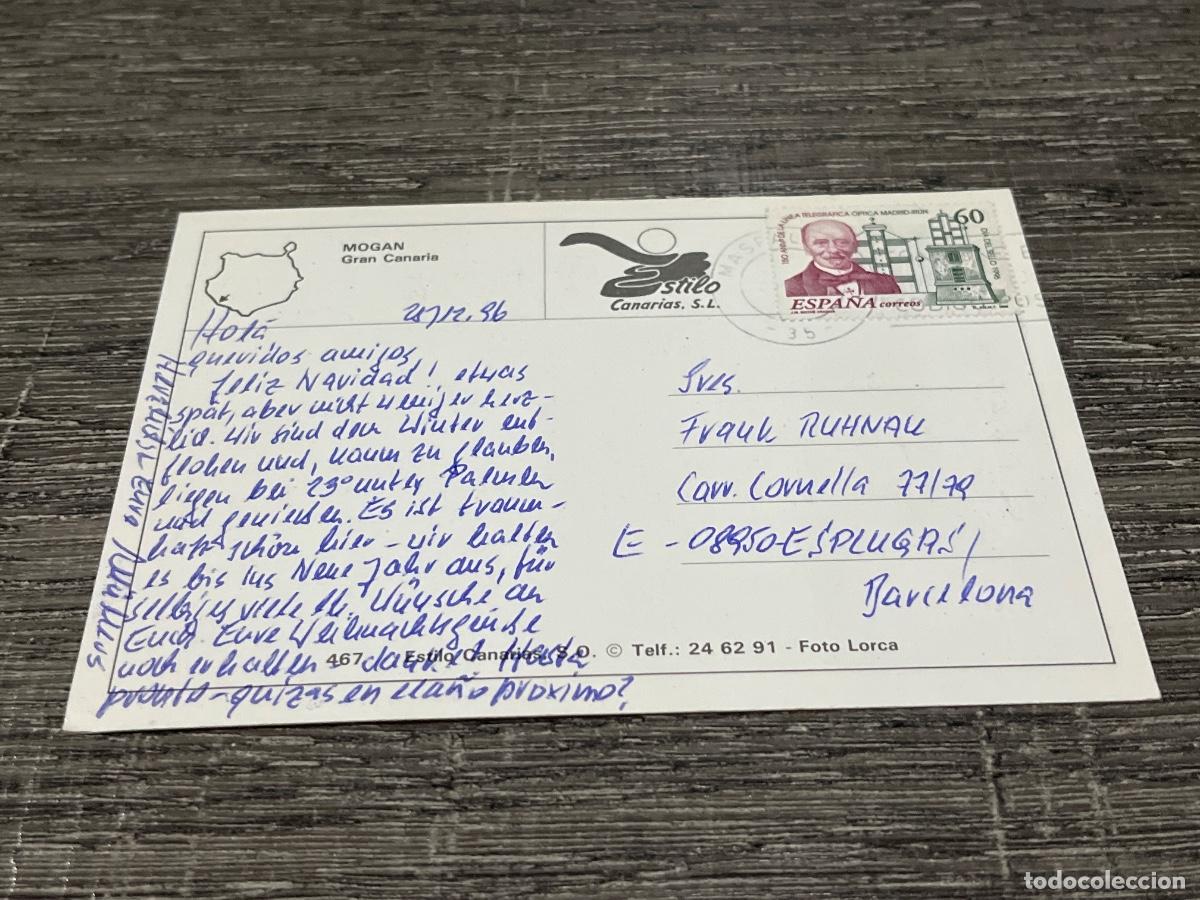 MOGAN
Gran Canaria
Estilo
Canarias, S.L.
150 AÑOS DE LA LINEA TELEGRAFICA OPTICA MADRID-IRUN
60
ESPAÑA correos
35
28/12.96
Holá
queridos amigos
feliz Navidad! etwas
spät, aber nicht weniger herz-
lich. Wir sind dem Winter ent-
flohen und, kaum zu glauben,
liegen bei 23° unter Palmen
und genießen. Es ist traum-
haft schön hier - wir halten
es bis ins Neue Jahr aus, für
selbiges viele lb. Wünsche an
Euch. Eure Weihnachtsgrüße
noch erhalten - danke! Hasta
pronto - quizas en el año proximo?
Herzlichst Eure
Sres.
Frank RUHNAU
Carr. Cornella 77/79
E - 08950-ESPLUGAS/
Barcelona
467 Estilo Canarias, S.O. © Telf.: 24 62 91 - Foto Lorca
todocoleccion